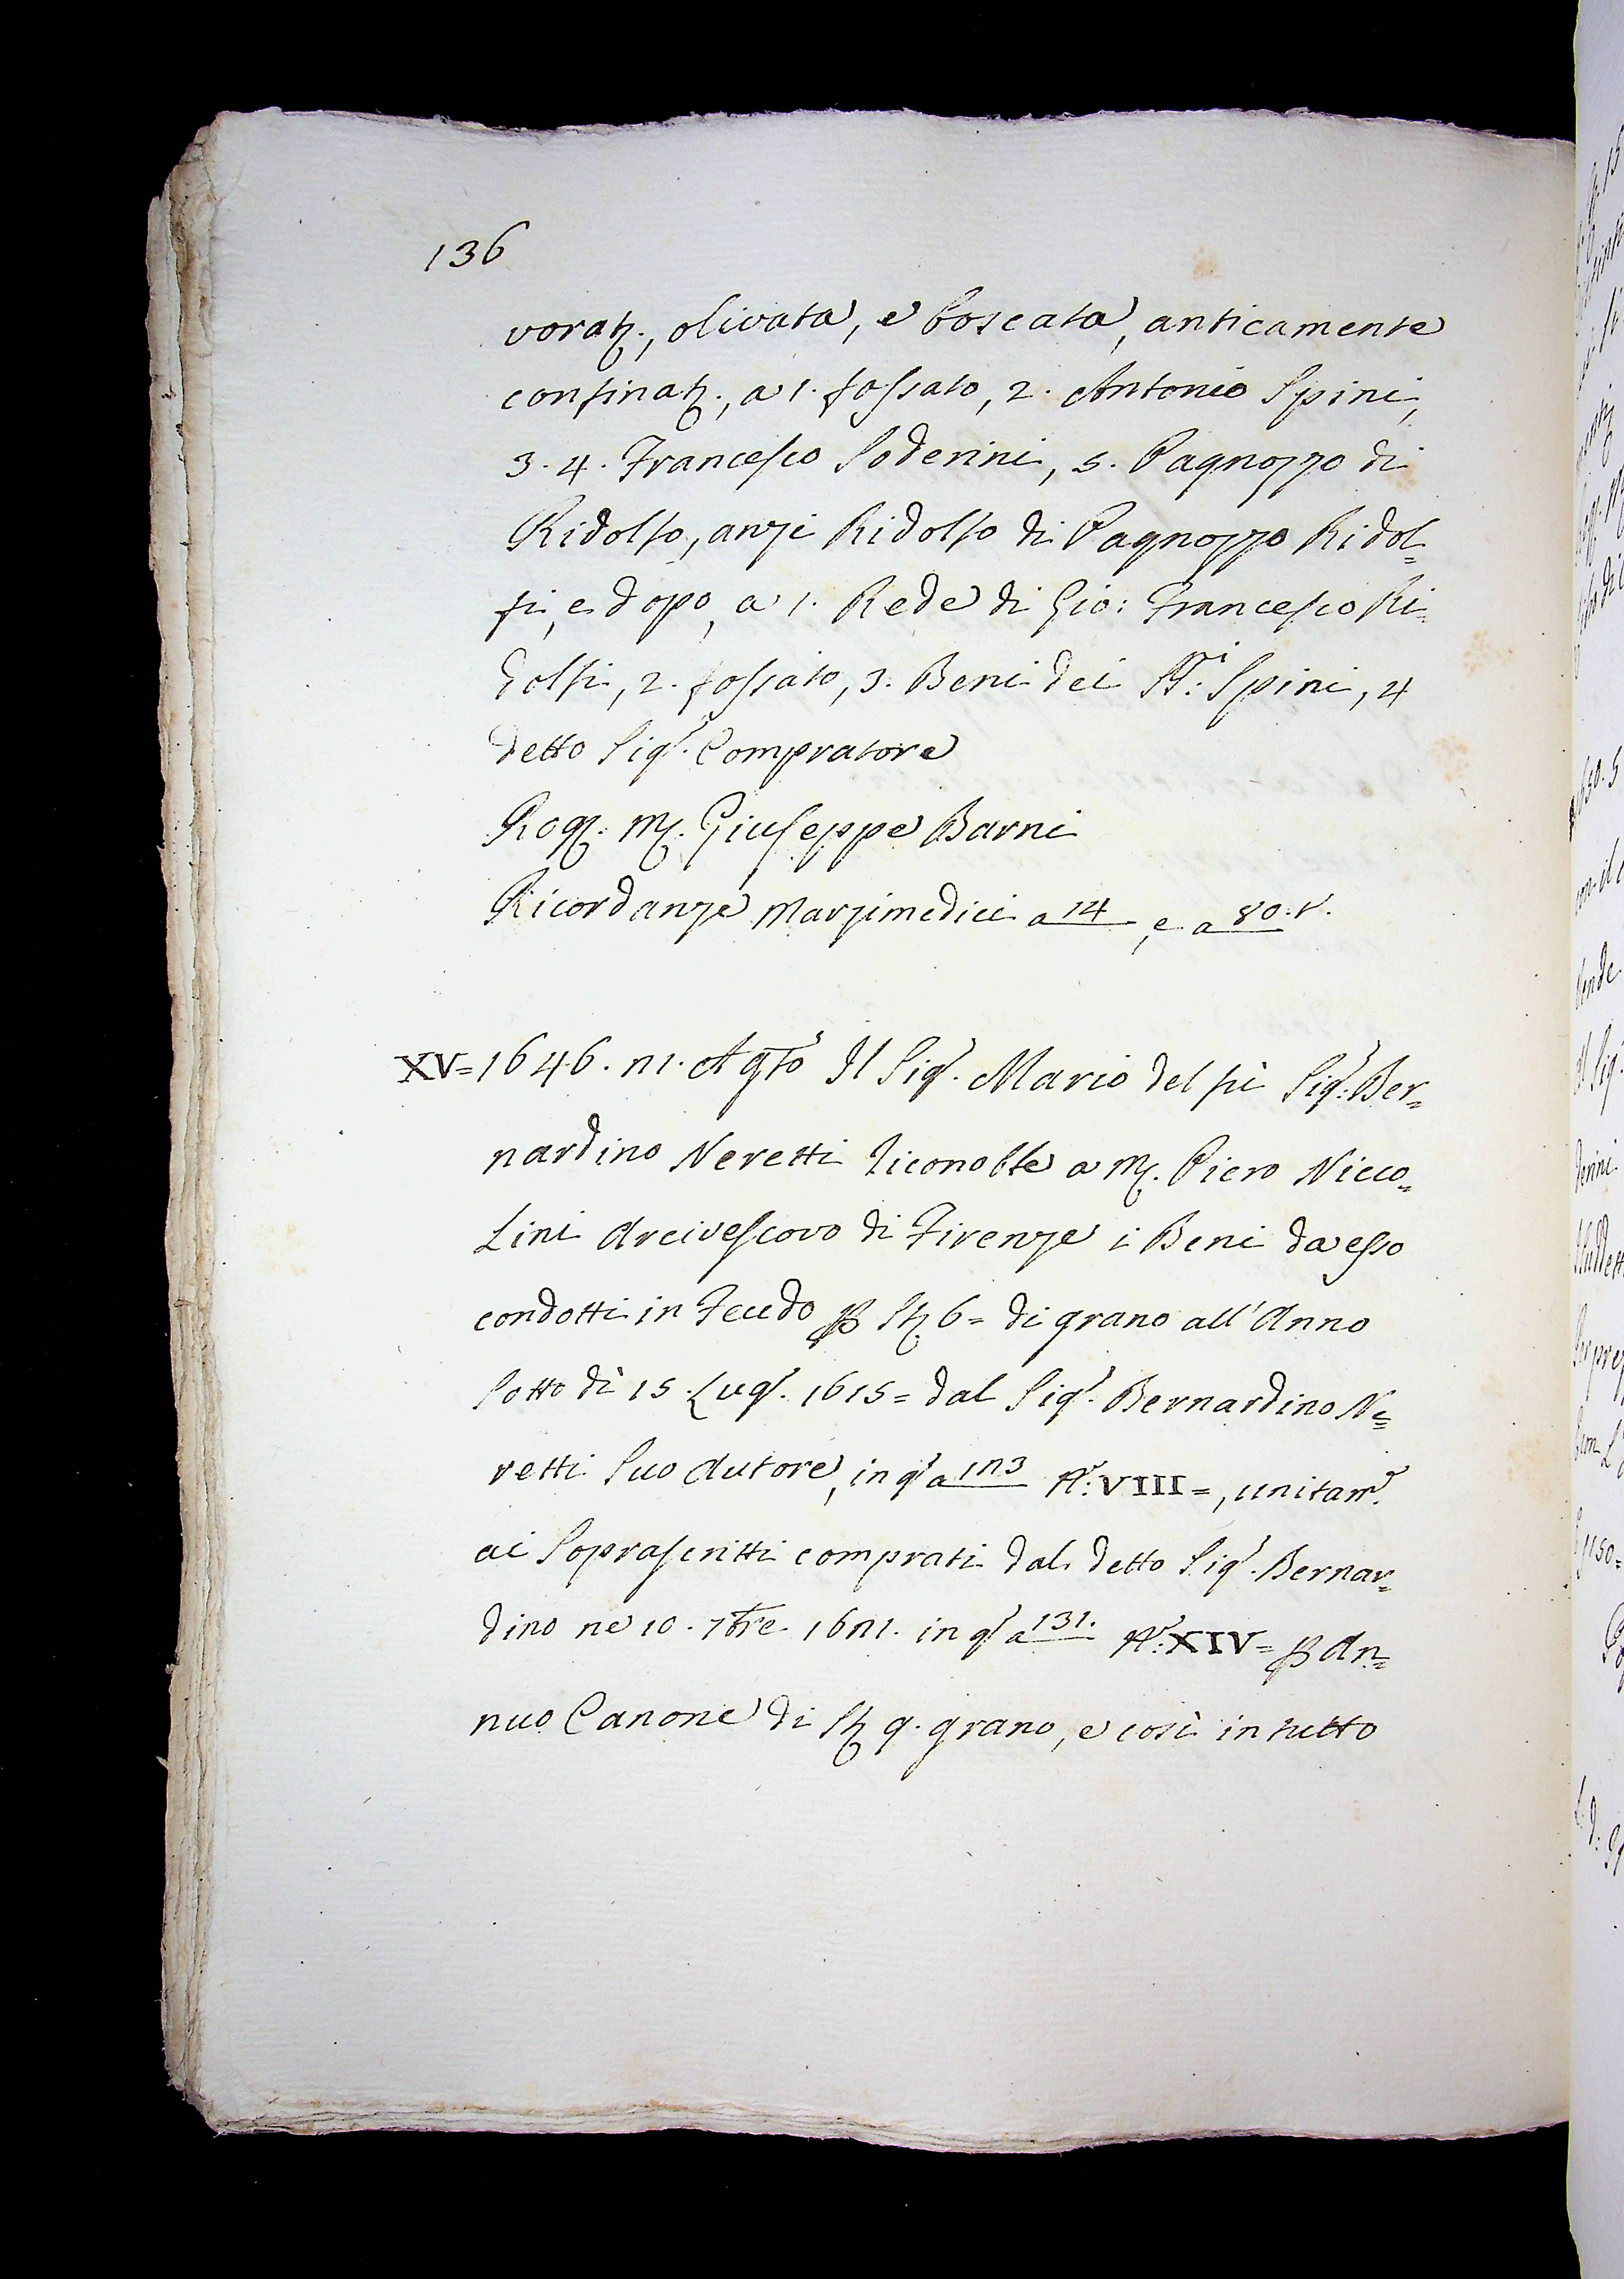 136
vorat., olivata, e boscata, anticamente
confinat., a 1. fossato, 2. Antonio Spini,
3. 4. Francesco Soderini, 5. Pagnozzo di
Ridolfo, anzi Ridolfo di Pagnozzo Ridol=
fi, e dopo, a 1. Rede di Gio: Francesco Ri=
dolfi, 2. fossato, 3. Beni dei SS:ri Spini, 4
detto Sigr. Compratore
Rog. M. Giuseppe Barni
Ricordanze Marzimedici a 14, e a 80. t.
XV= 1646. 21. Agto Il Sigr. Mario del fù Sigr: Ber=
nardino Neretti riconobbe a M. Piero Nicco=
lini Arcivescovo di Firenze i Beni da esso
condotti in Feudo p St 6= di grano all'Anno
sotto dì 15. Lugl. 1615= dal Sigr. Bernardino Ne=
retti suo Autore, in qo a 123 No: VIII=, unitamte.
ai soprascritti comprati dal detto Sigr. Bernar=
dino ne 10. 7bre 1621. in qo a 131. No: XIV= p An=
nuo Canone di St 9. grano, e così in tutto